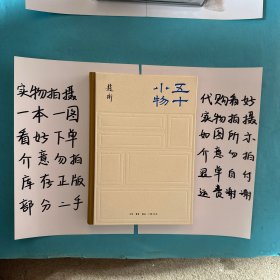 实物拍摄
一本一图
看好下单
介意勿拍
库存正版
部分二手
五十
小物
赵珩
代购看好
实物拍摄
如图所示
介意勿拍
单自付
谢